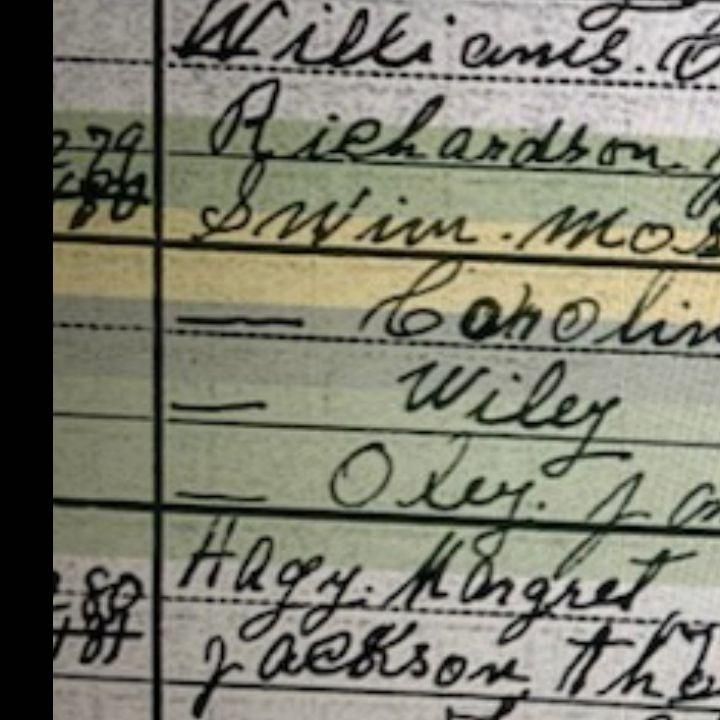 Williams.
279 Richardson.
Swim. Mos
— Carolin
— Wiley
— Oley. J
280 Hagy. Margret
Jackson, The